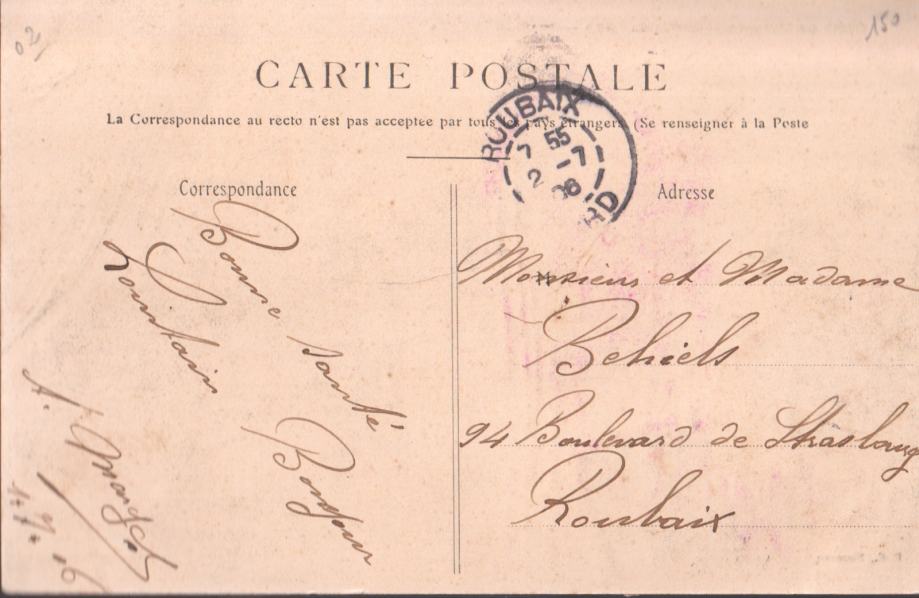 02
150
CARTE POSTALE
La Correspondance au recto n'est pas acceptée par tous les pays étrangers (Se renseigner à la Poste
ROUBAIX
7 55
2 -7
08
RD
Correspondance
Bonne santé
Bonjour
Lointain
A.
Adresse
Monsieur et Madame
Behiels
94 Boulevard de Strasbourg
Roubaix